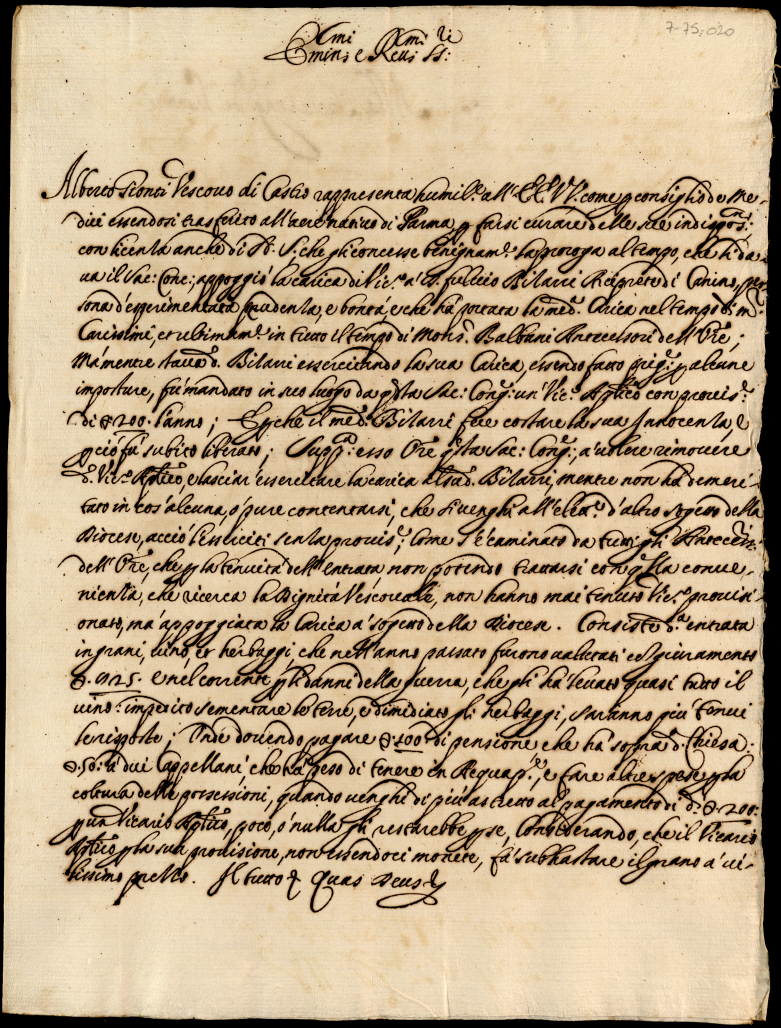 7-75-020
Emin:mi e Reu:mi SS:ri
Alberto Vescouo di Castro rappresenta humil.e all'EE. VV. come p consiglio de Me-
dici essendosi trasferito all'aere natiuo di Parma p farsi curare delle sue indispos.ni
con licenza anche di N. S. che gli concesse benignam.e la proroga al tempo, che li da-
ua il Sac: Conc: appoggiò la carica di Vic.o a D. Fuluio Bilarri Arciprete di Canino, per-
sona d'esperimentata prudenza, e bontà, e che hà portata la med.a Carica nel tempo di m.r
Carissimi, et ultimam.e in tutto il tempo di Mons.r Balbani Antecessori dell'Ore;
Mà mentre staua d. Bilarri essercitando la sua Carica, essendo fatto prig: p alcune
imposture, fù mandato in suo luogo da q.sta Sac: Cong: un' Vic.o Ap.lico con prouis:
di ∇ 200. l'anno; E pche il med.o Bilarri fece costare la sua Innocenza, e
pciò fù subito liberato; Supp.ca esso Ore q.sta Sac: Cong: a' uolere rimouere
d. Vic.o Ap.lico, e lasciar' essercitare la carica al sud.o Bilarri, mentre non hà demeri-
tato in cos' alcuna, ò pure contentarsi, che si uenghi all'elett.ne d'altro sogetto della
Diocese, acciò l'esserciti senza prouis.e; Come s'è caminato da tutti gli Antecess.ri
dell'Ore, che p la tenuità dell'entrata non potendo trattarsi con q.lla conue-
nienza, che ricerca la Dignità Vescouale, non hanno mai tenuto Vic.o prouisi-
onato, mà appoggiata la Carica a' sogetto della Diocese. Consiste d.a entrata
in grani, uino, et herbaggi, che nell'anno passato furono ualutati con giuramento
∇. 925. e nel corrente p li danni della guerra, che gli hà leuato quasi tutto il
uino: impedito sementare le terre, e dimidiato gli herbaggi, saranno più tenui
le risposte; Onde douendo pagare ∇. 100. di pensione che hà sopra d. Chiesa:
∇. 50: a' dui Cappellani, che hà peso di tenere in Acquap.te, e fare altre spese p la
coltura delle possessioni, quando uenghi di più astretto al pagamento di d. ∇ 200.
p un Vicario Ap.lico, poco, ò nulla gli restarebbe p se, Considerando, che il Vicario
Ap.lico p la sua prouisione, non essendoci monete, fà subhastare il grano a' ui-
lissimo prezzo. Il tutto & Quas Deus &